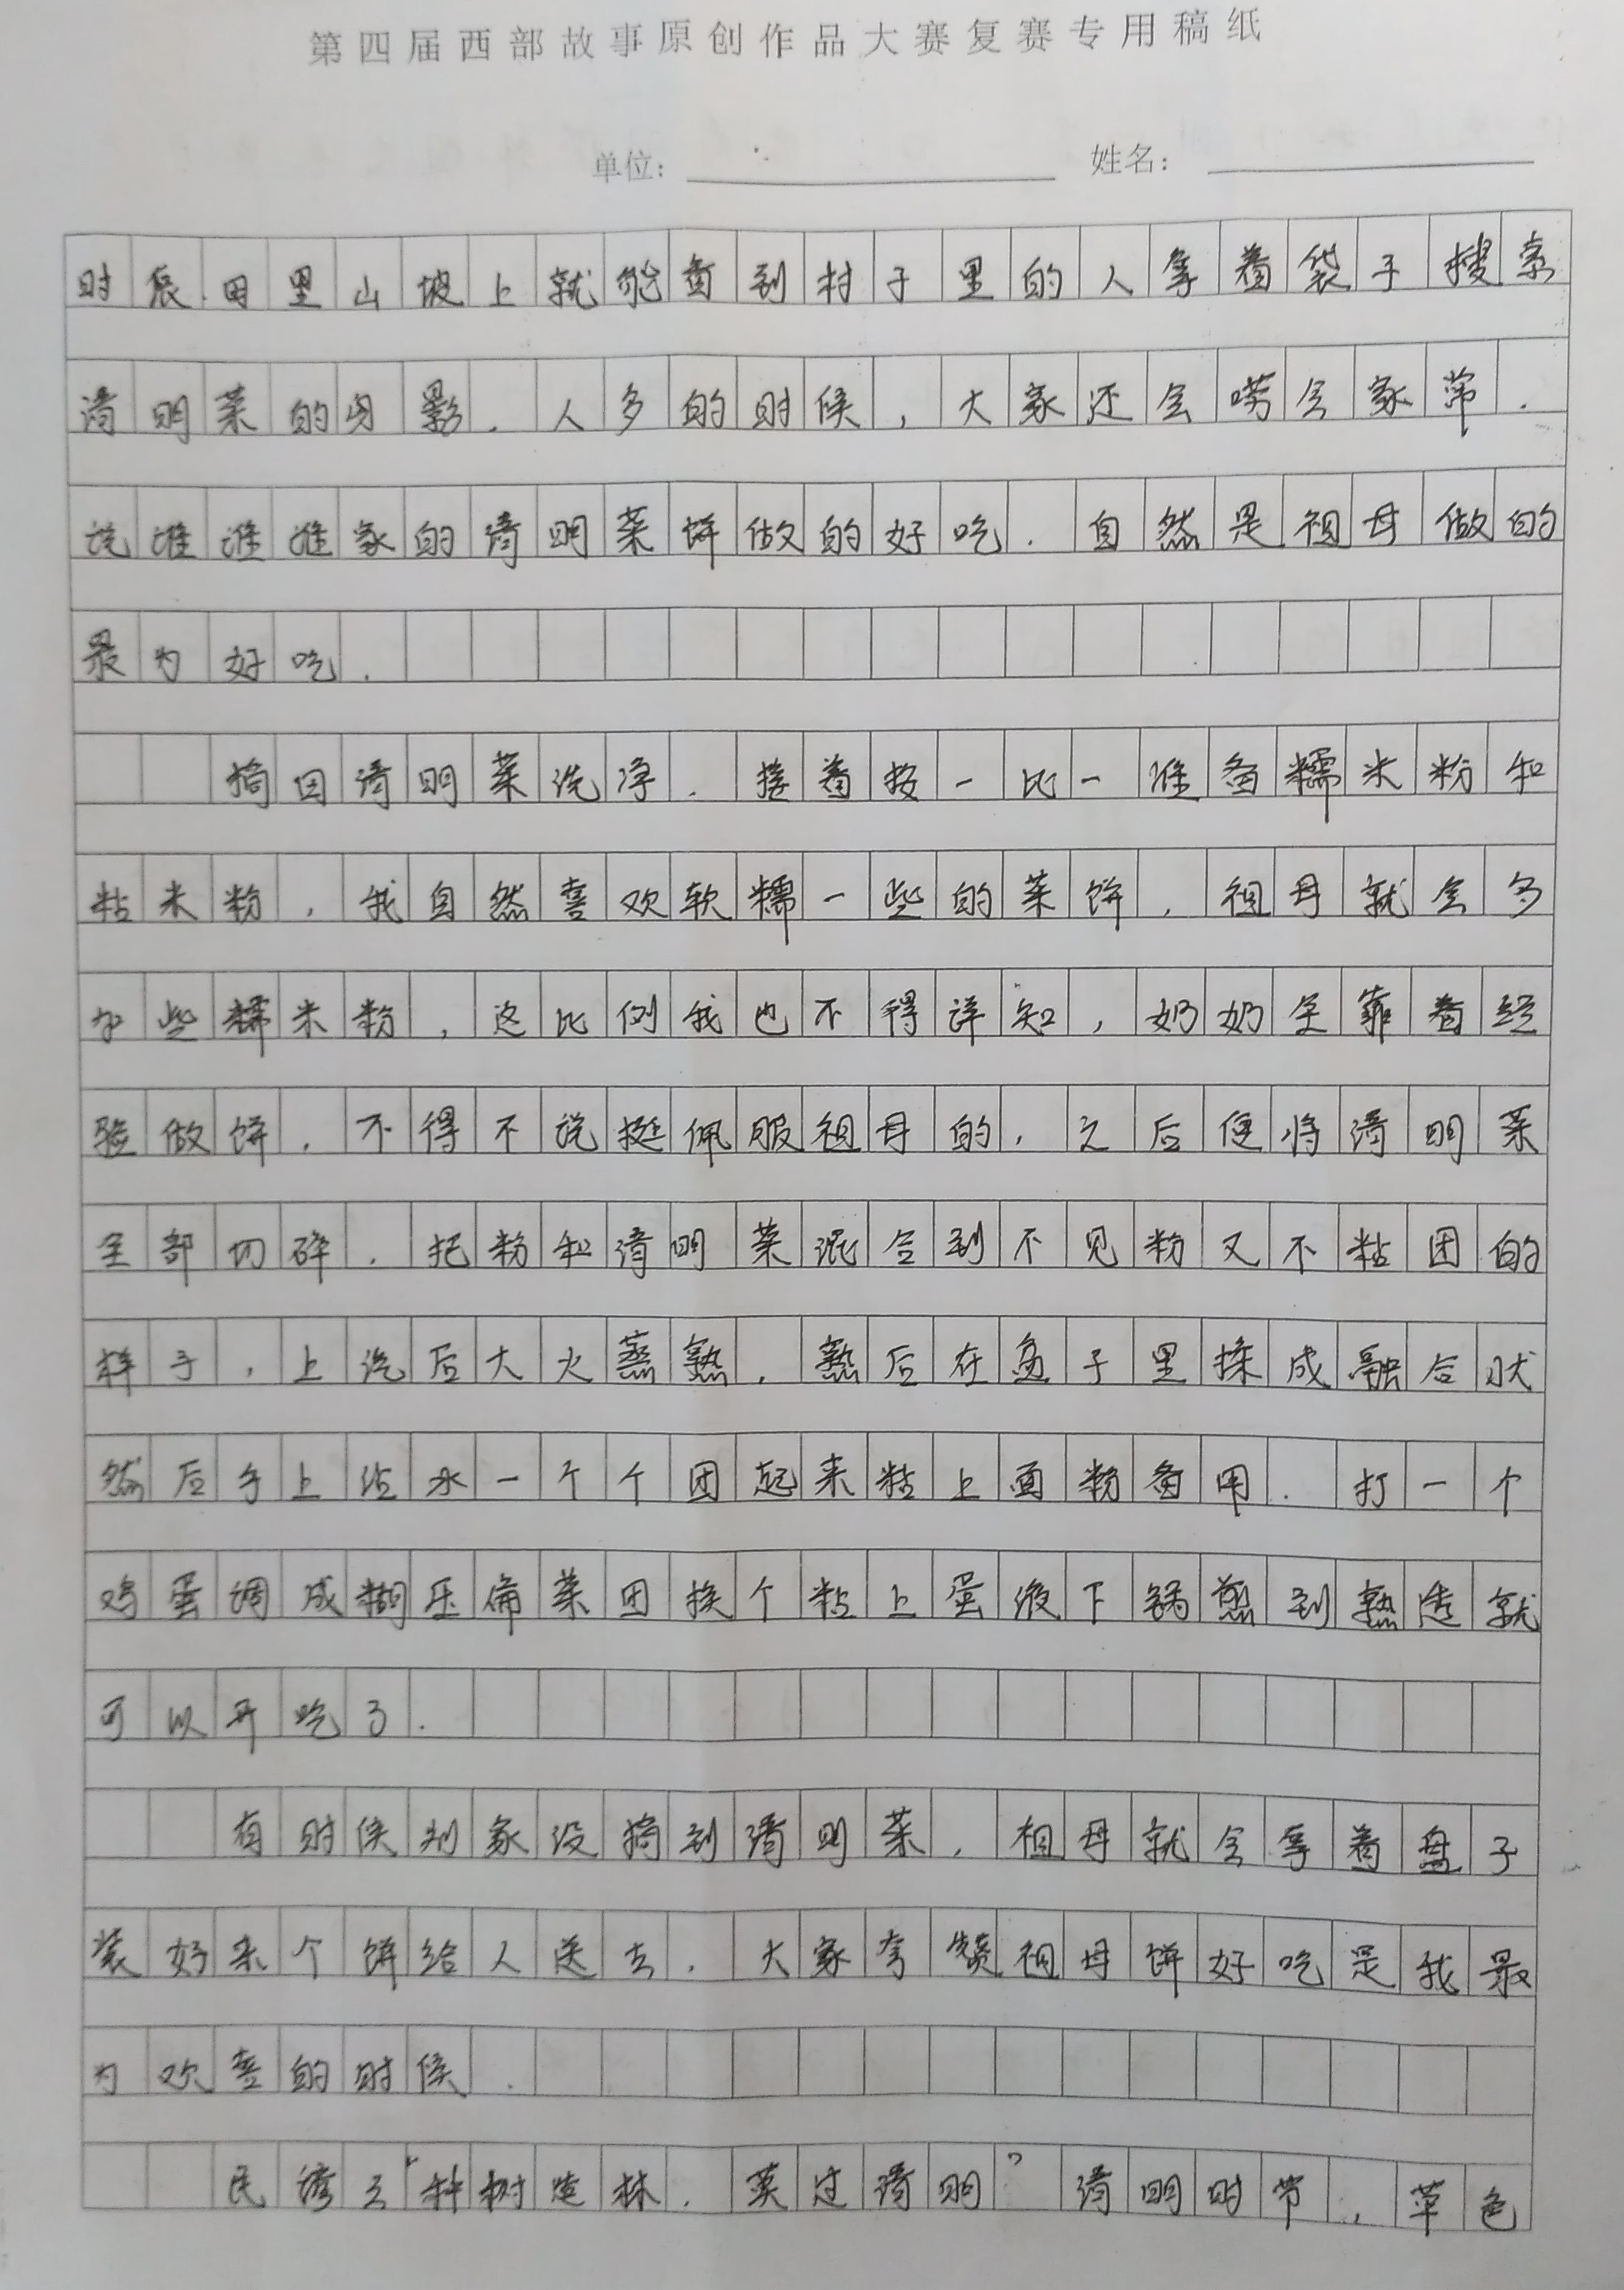 第四届西部故事原创作品大赛复赛专用稿纸
单位： 姓名：
时辰.田里山坡上就能看到村子里的人拿着袋子搜索
清明菜的身影.人多的时候,大家还会唠会家常.
说谁谁谁家的清明菜饼做的好吃.自然是祖母做的
最为好吃.
摘回清明菜洗净.接着按一比一准备糯米粉和
粘米粉,我自然喜欢软糯一些的菜饼,祖母就会多
加些糯米粉,这比例我也不得详知,奶奶全靠着经
验做饼.不得不说挺佩服祖母的,之后便将清明菜
全部切碎.把粉和清明菜混合到不见粉又不粘团的
样子,上汽后大火蒸熟.熟后在盆子里揉成融合状
然后手上沾水一个个团起来粘上面粉备用.打一个
鸡蛋调成糊压扁菜团挨个粘上蛋液下锅煎到熟透就
可以开吃了.
有时候别家没摘到清明菜,祖母就会拿着盘子
装好来个饼给人送去.大家夸赞祖母饼好吃是我最
为欢喜的时候.
民谚云“种树造林.莫过清明”清明时节,草色